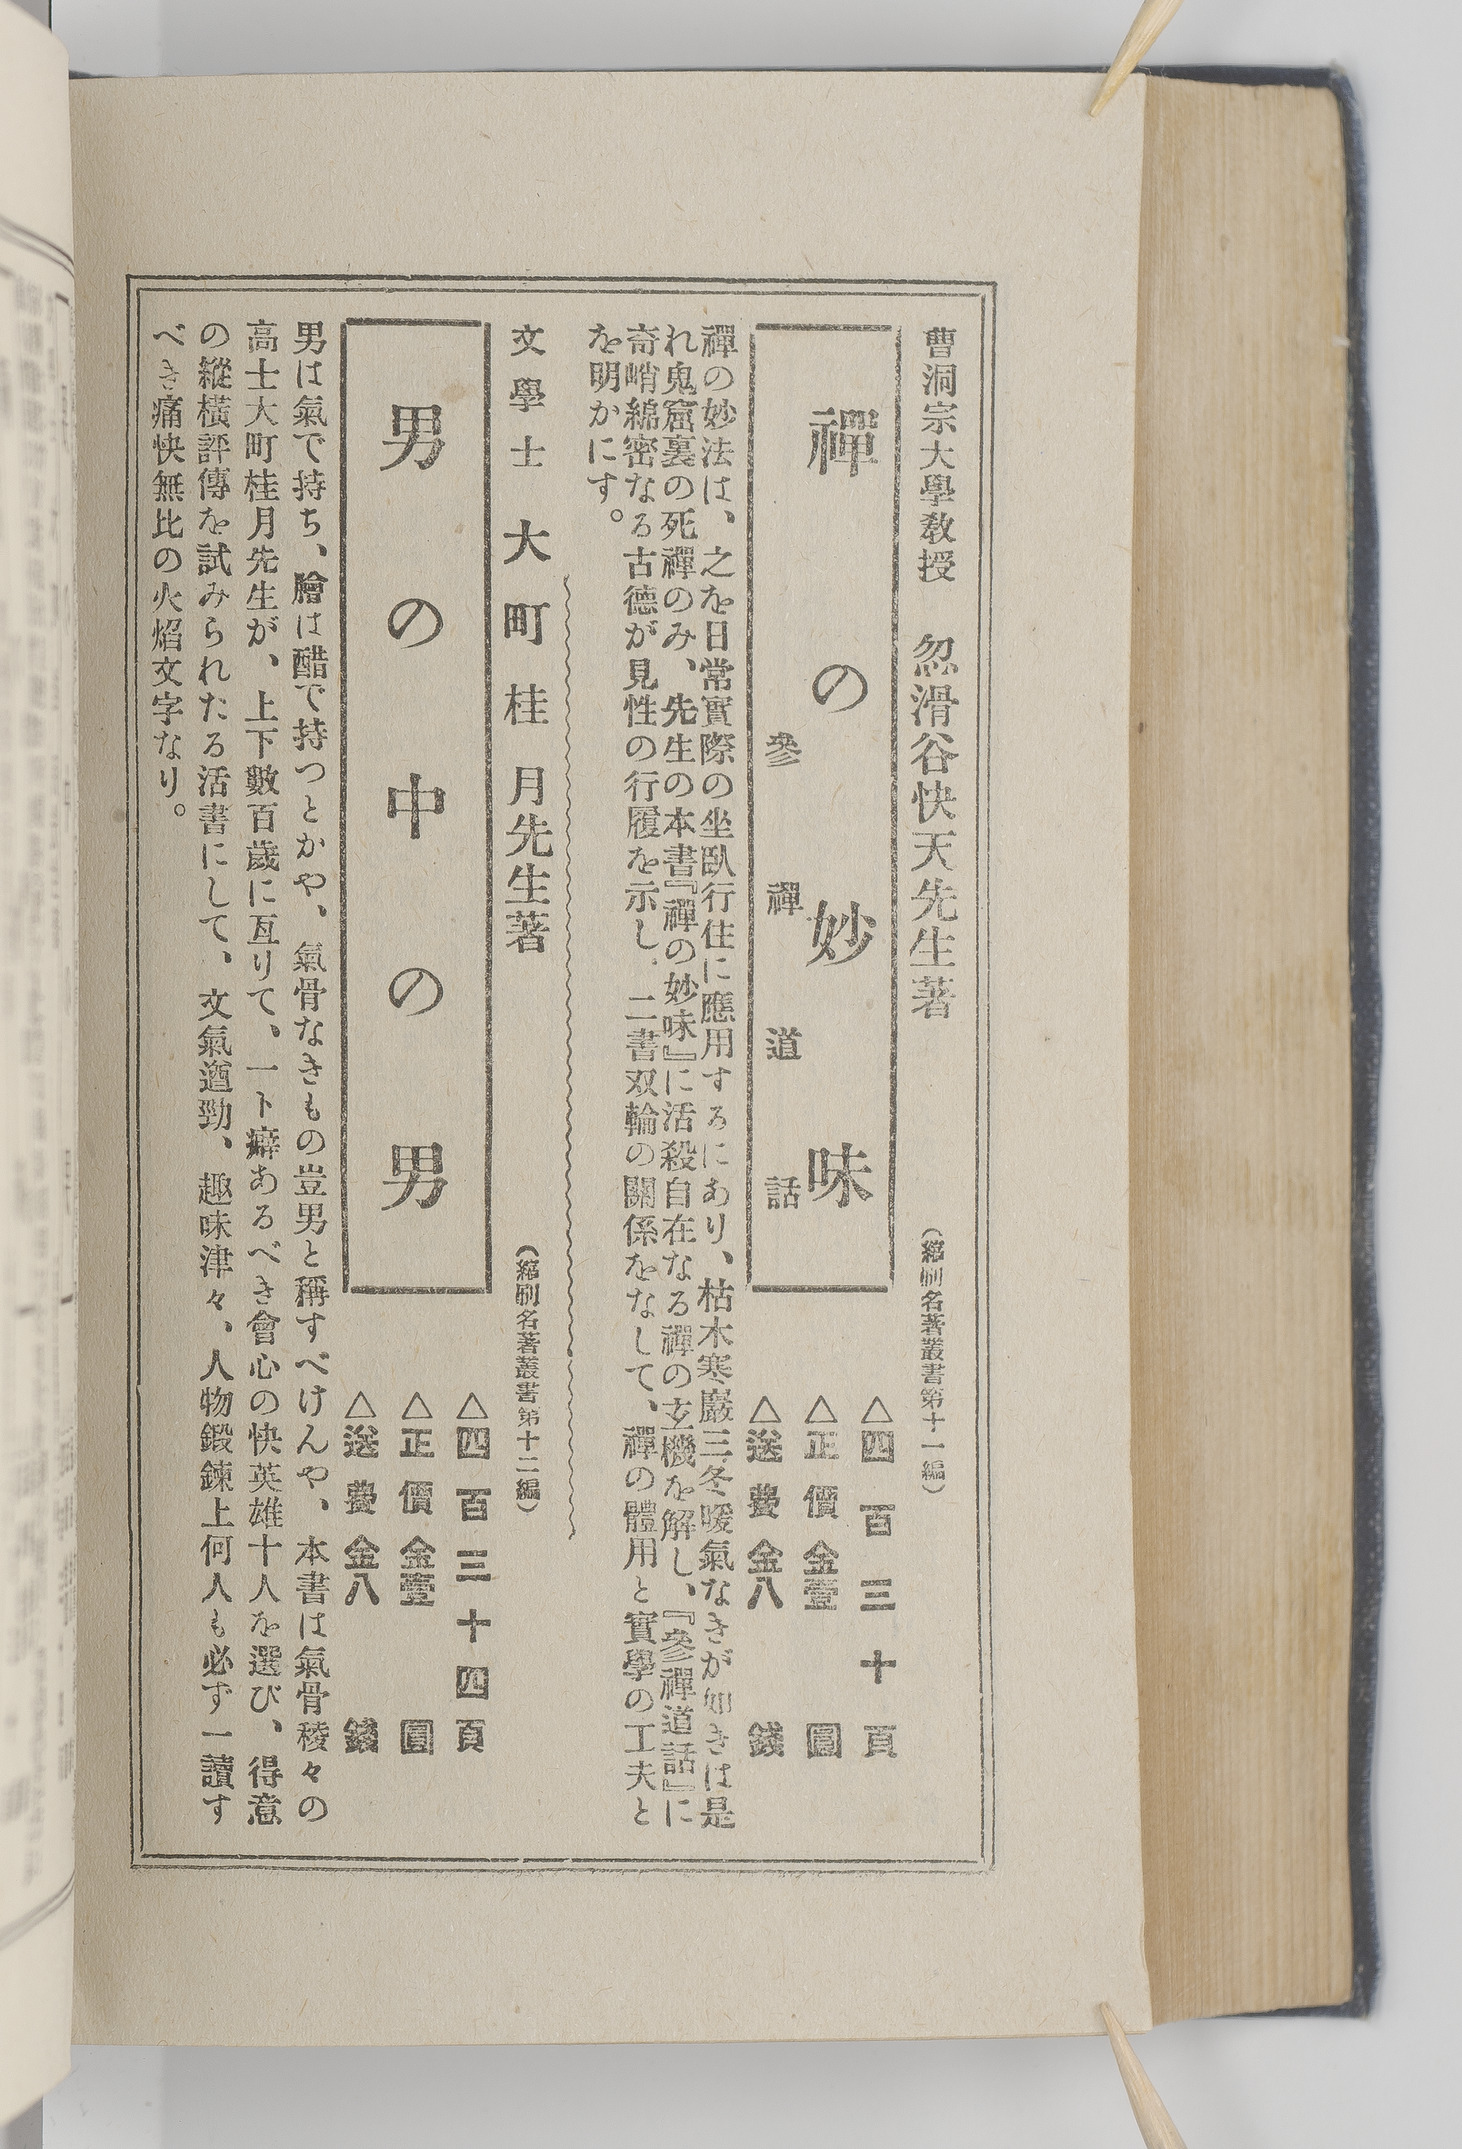 曹洞宗大學敎授　忽滑谷快天先生著
（縮刷名著叢書第十一編）
禪の妙味
參禪道話
△四百三十頁
△正價金壹圓
△送費金八錢
禪の妙法は、之を日常實際の坐臥行住に應用するにあり、枯木寒巖三冬暖氣なきが如きは是
れ鬼窟裏の死禪のみ、先生の本書『禪の妙味』に活殺自在なる禪の玄機を解し、『參禪道話』に
奇峭綿密なる古德が見性の行履を示し、二書双輪の關係をなして、禪の體用と實學の工夫と
を明かにす。
文學士　大町桂月先生著
（縮刷名著叢書第十二編）
男の中の男
△四百三十四頁
△正價金壹圓
△送費金八錢
男は氣で持ち、膾は醋で持つとかや、氣骨なきもの豈男と稱すべけんや、本書は氣骨稜々の
高士大町桂月先生が、上下數百歲に亙りて、一ト癖あるべき會心の快英雄十人を選び、得意
の縱橫評傳を試みられたる活書にして、文氣遒勁、趣味津々、人物鍛鍊上何人も必ず一讀す
べき痛快無比の火焰文字なり。